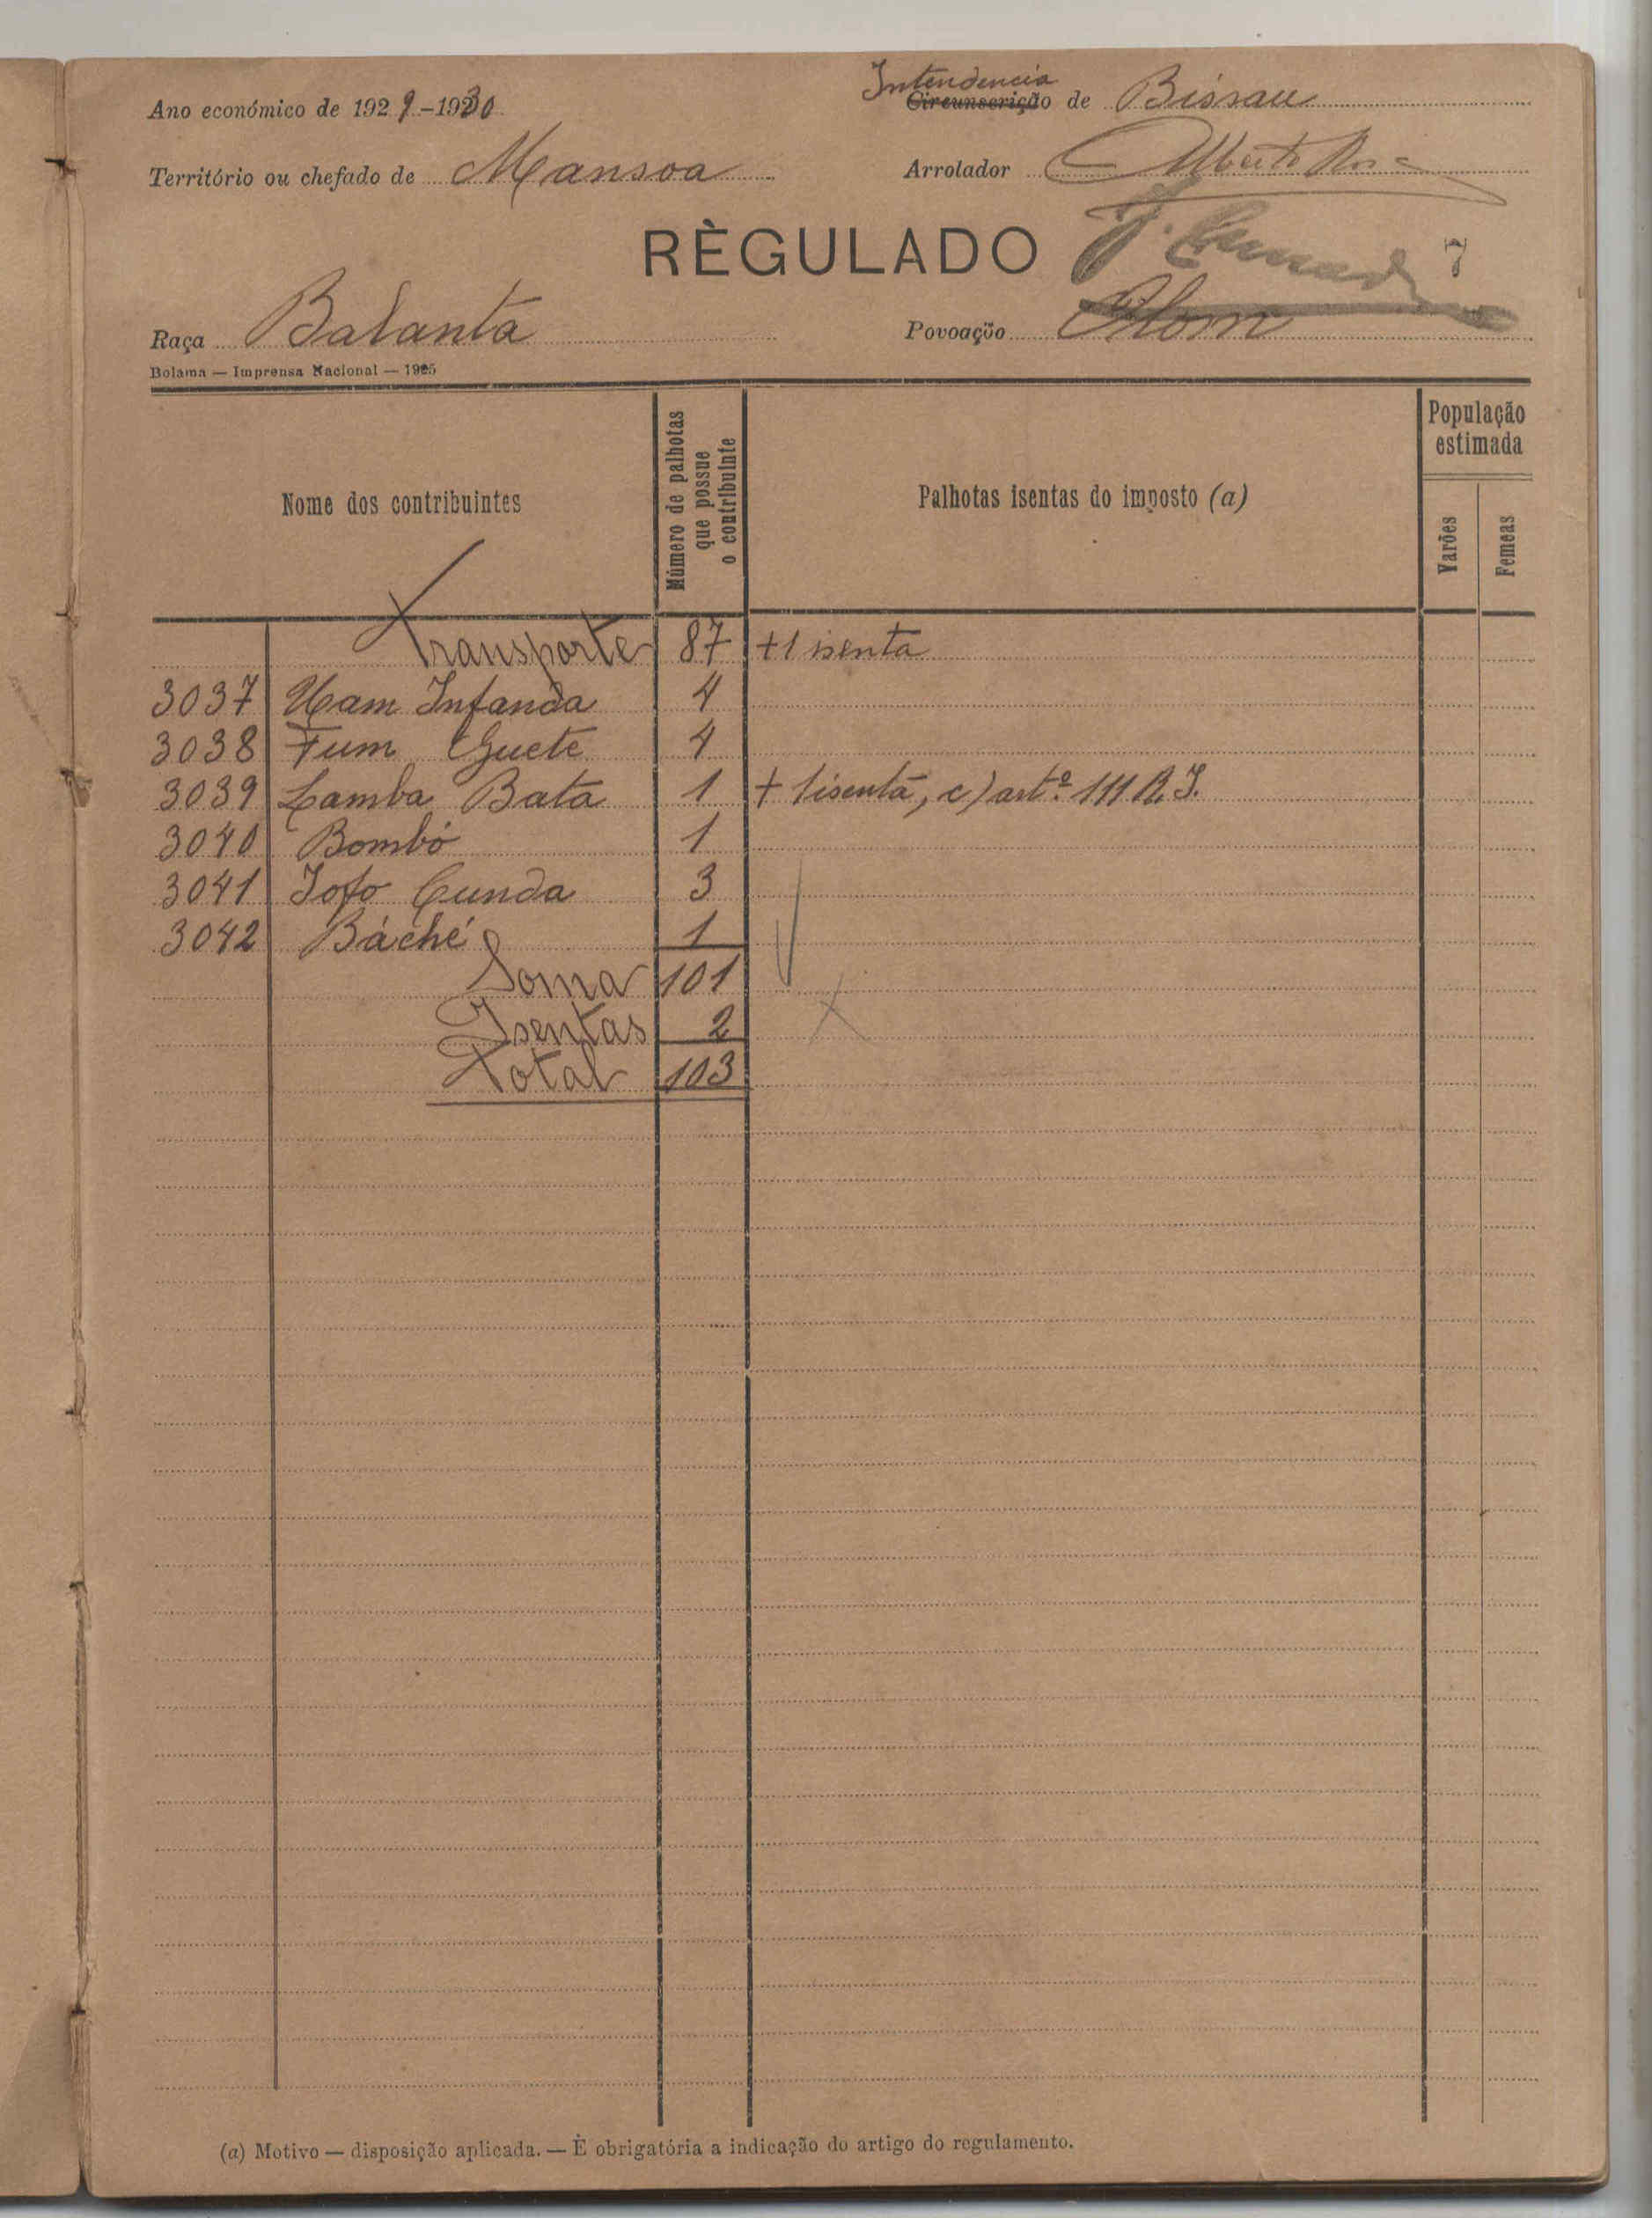 Ano económico de 1929-1930
Intendencia
Circunscrição de Bissau
Território ou chefado de Mansoa
Arrolador Alberto
RÈGULADO
7
Raça Balanta
Povoação
Bolama — Imprensa Nacional — 1925
Nome dos contribuintes
Número de palhotas que possue o contribuinte
Palhotas isentas do imposto (a)
População estimada
Varões
Femeas
Transporte 87 +1 isenta
3037 Ham Infanda 4
3038 Fum Guete 4
3039 Lamba Bata 1 + 1 isenta, c) artº 111 R. I.
3040 Bombó 1
3041 Jofó Cunda 3
3042 Báché 1
Soma 101
Isentas 2
Total 103
(a) Motivo — disposição aplicada. — É obrigatória a indicação do artigo do regulamento.